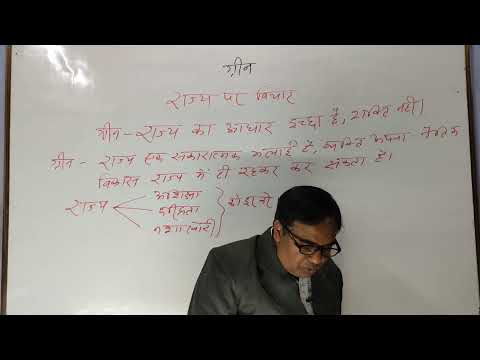 ग्रीन
राज्य पर विचार
ग्रीन - राज्य का आधार इच्छा है, शक्ति नहीं।
ग्रीन - राज्य एक सकारात्मक भलाई है, व्यक्ति अपना नैतिक
विकास राज्य में ही रहकर कर सकता है।
राज्य
अशिक्षा
दरिद्रता
नशाखोरी